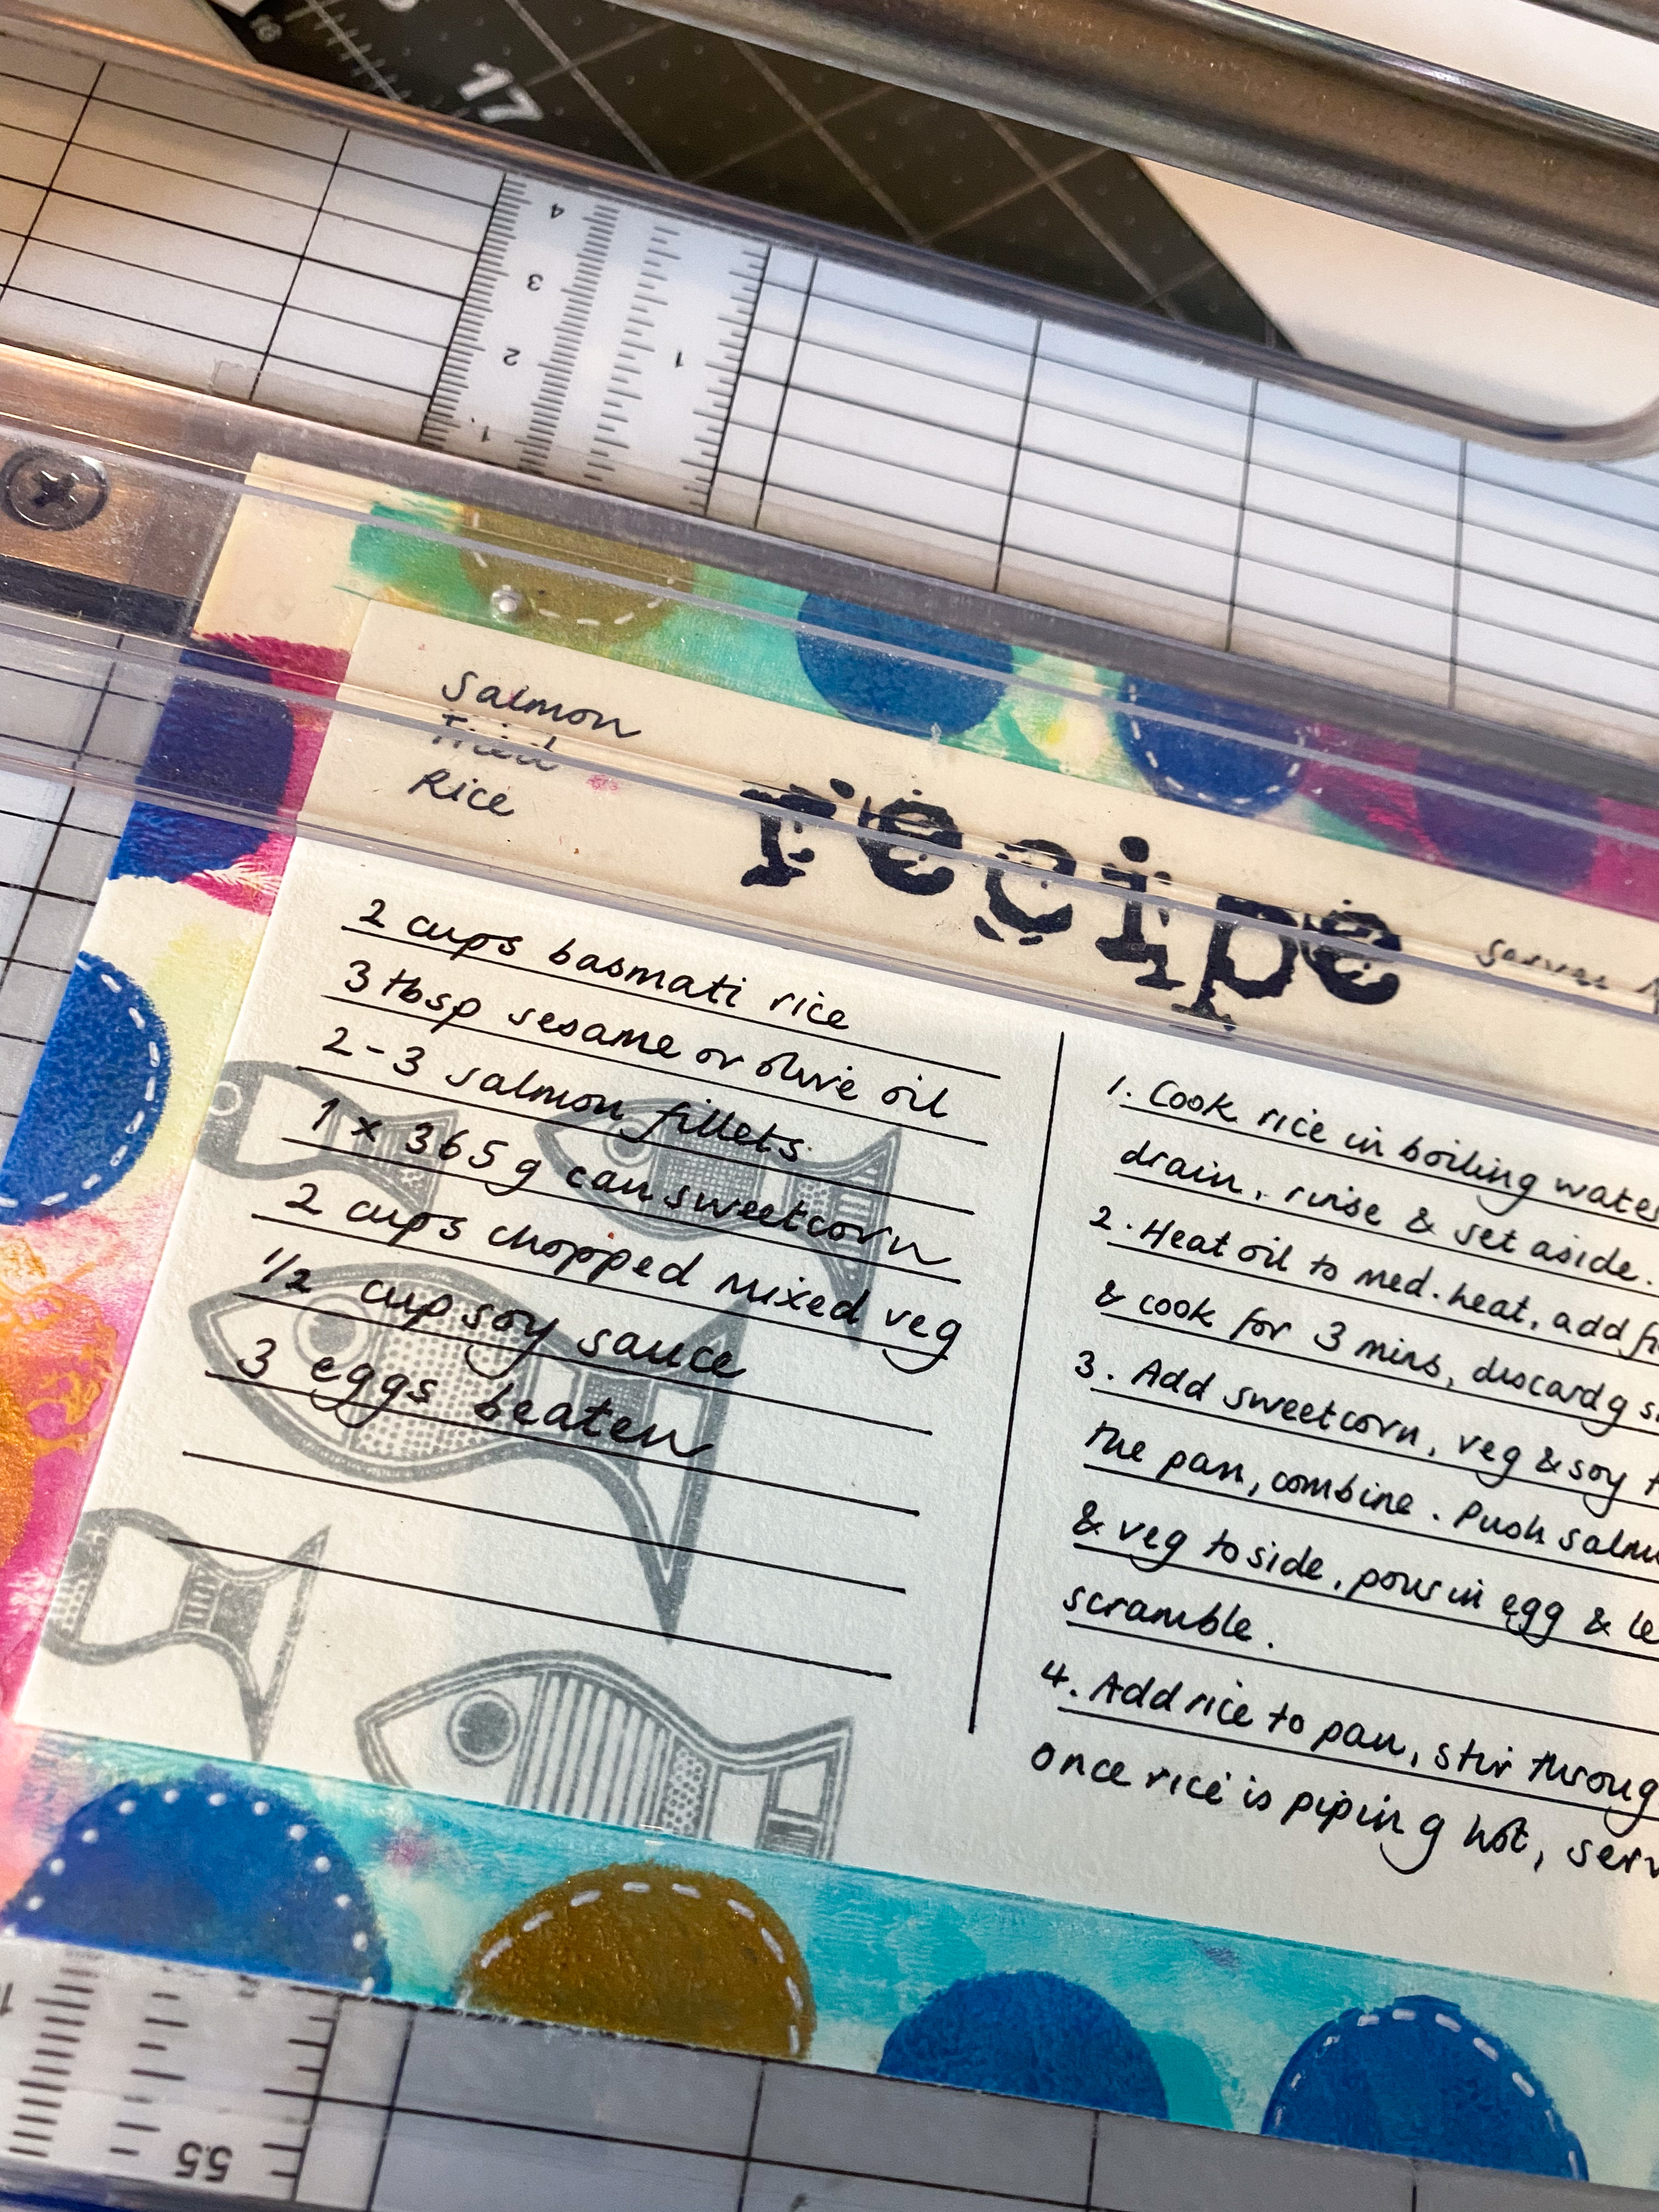 17
4
3
2
1
1
Salmon
Fried
Rice
recipe
2 cups basmati rice
3 tbsp sesame or olive oil
2-3 salmon fillets.
1 x 365g can sweetcorn
2 cups chopped mixed veg
1/2 cup soy sauce
3 eggs beaten
1. Cook rice in boiling water
drain, rinse & set aside.
2. Heat oil to med. heat, add
& cook for 3 mins, discard
3. Add sweetcorn, veg & soy
the pan, combine. Push
& veg to side, pour in egg &
scramble.
4. Add rice to pan, stir
once rice is piping hot,
55